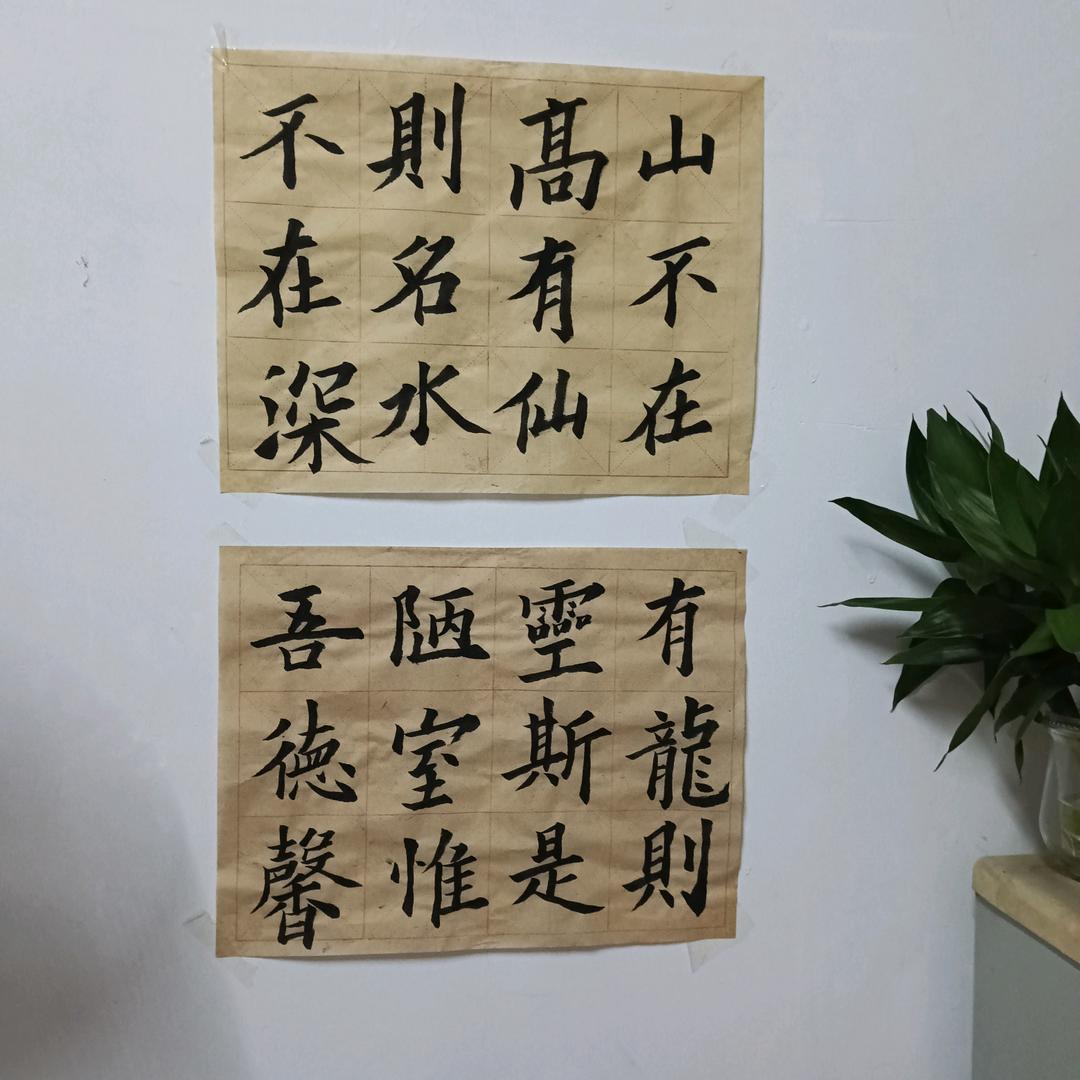 山不在
高有仙
則名水
不在深
有龍則
靈斯是
陋室惟
吾德馨